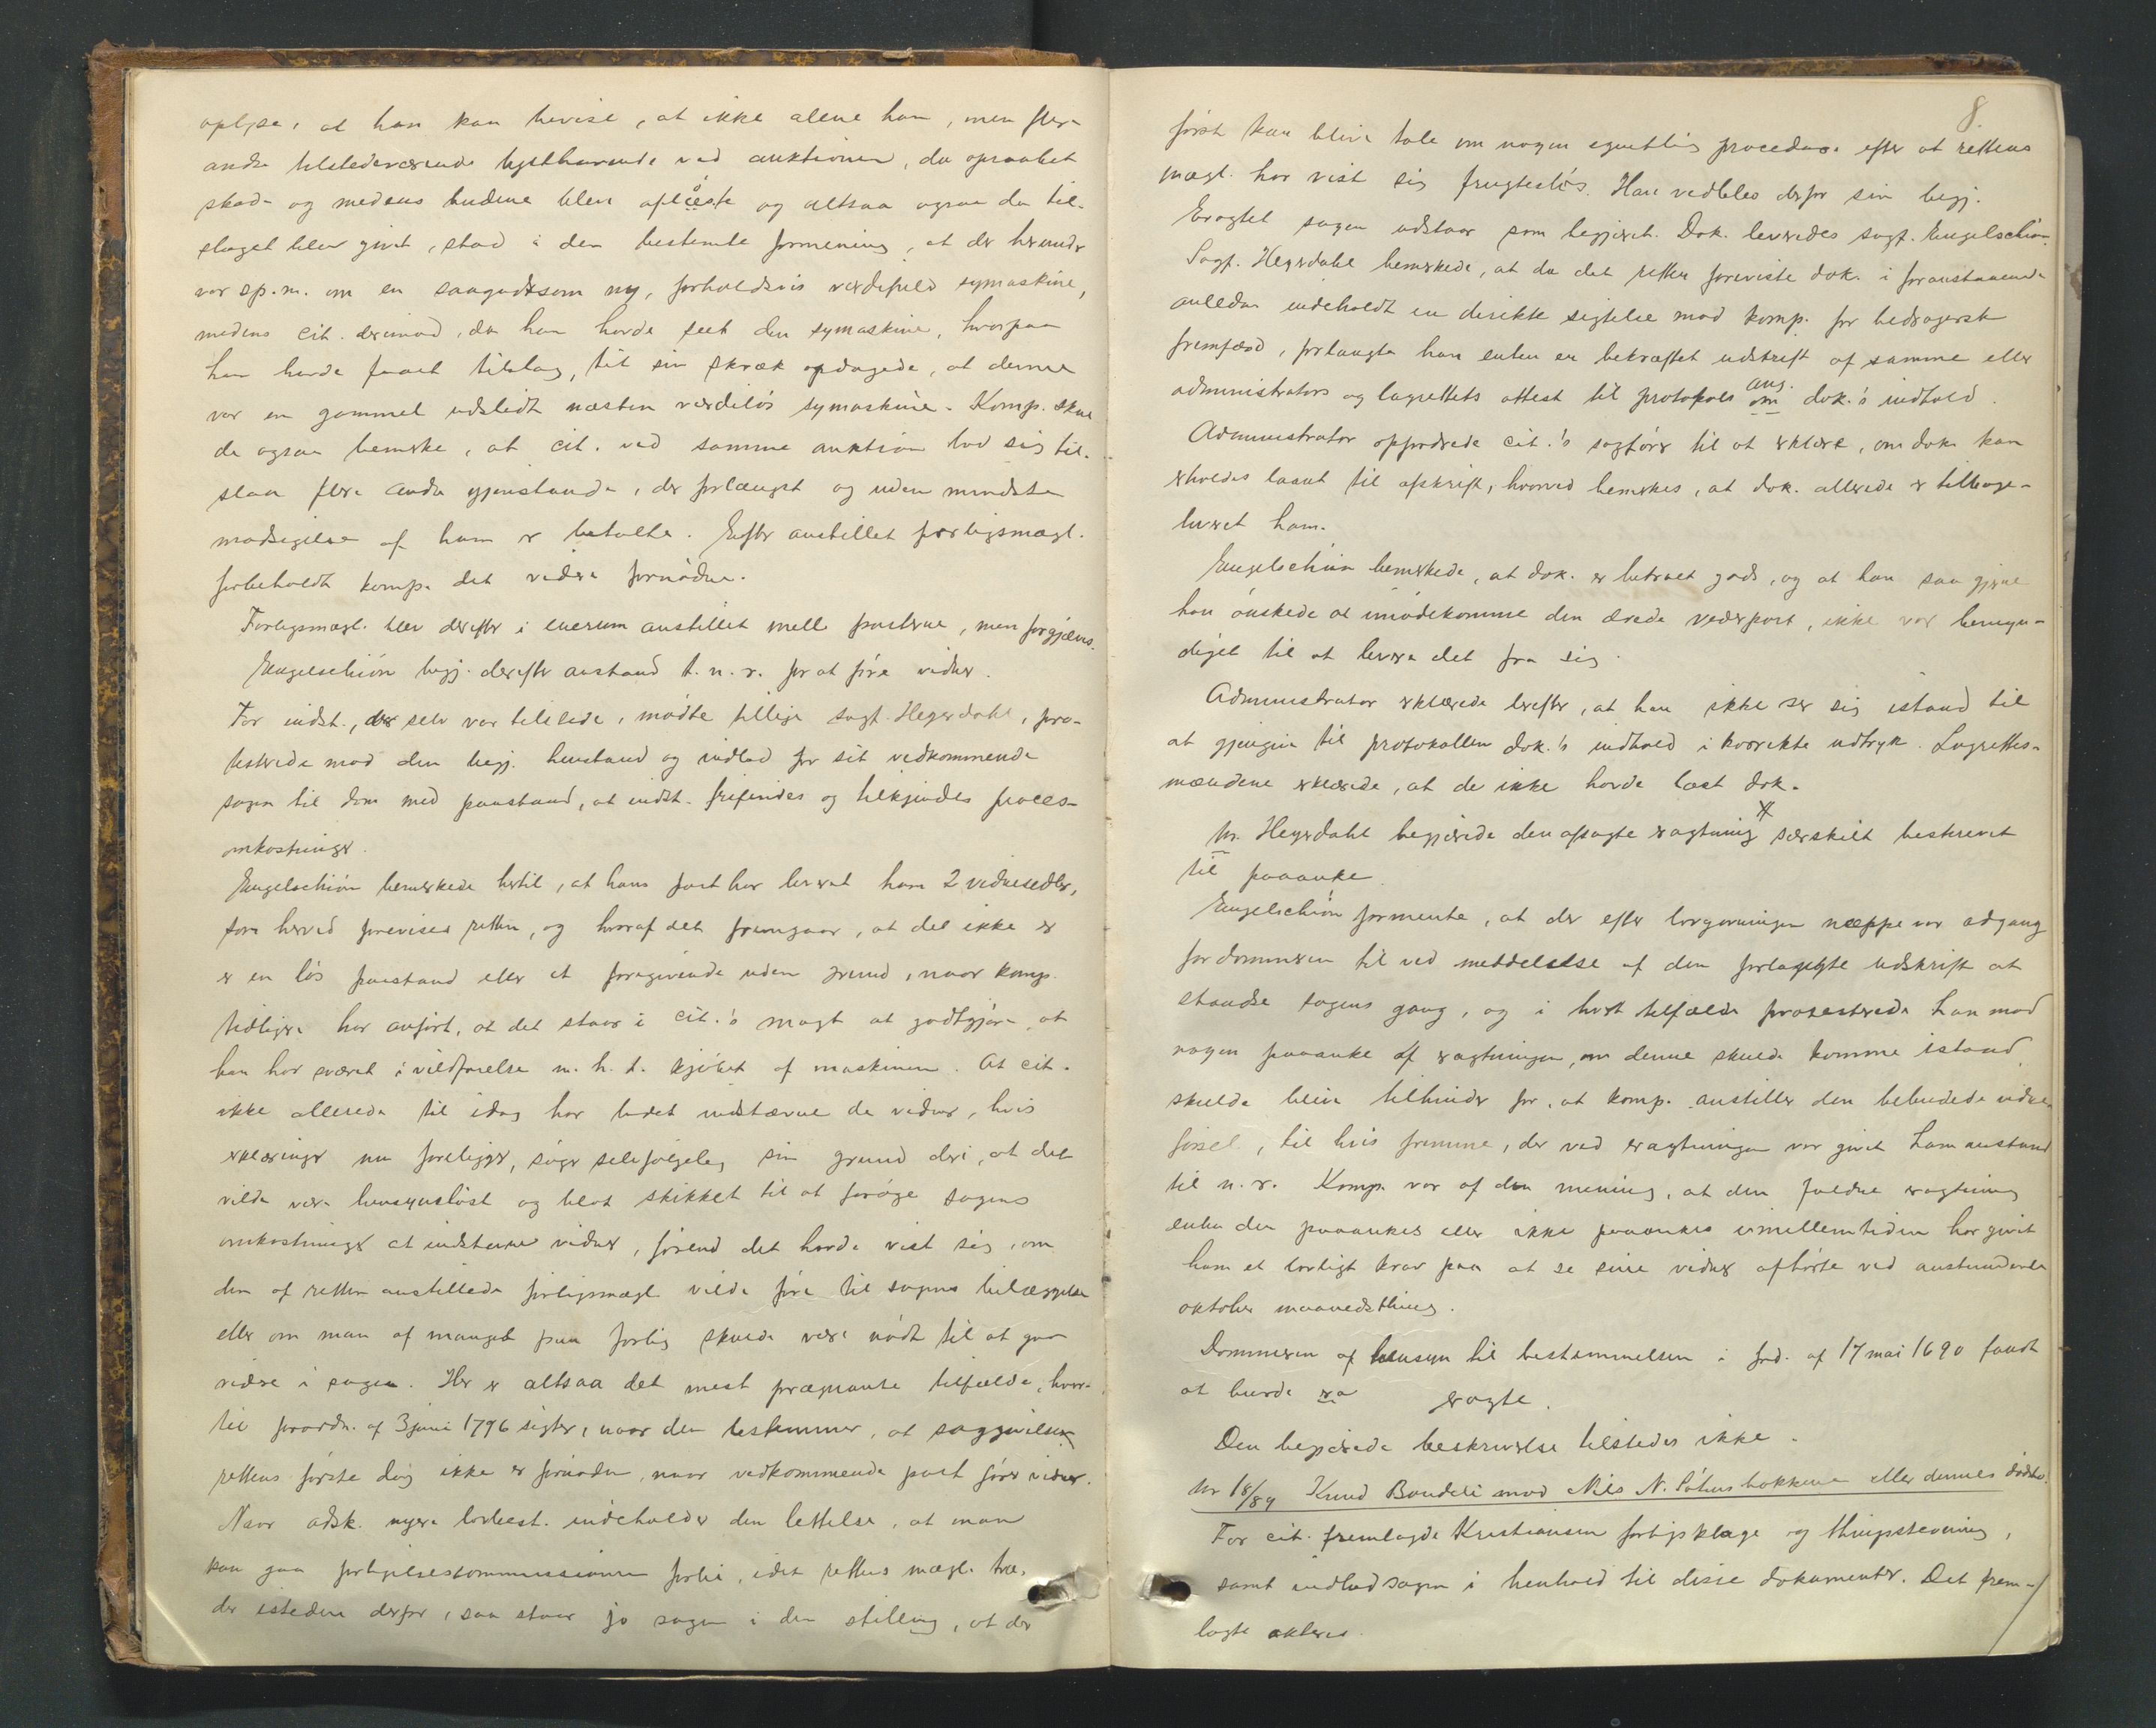 oplyse, at han kan bevise, at ikke alene han, men flere
andre tilstedeværende lysthavende ved auktionen, da opraabet
skede og medens budene blev oplæste og altsaa ogsaa da til-
slaget blev givet, stod i den bestemte formening, at der herunder
var sp.m. om en saagodtsom ny, forholdsvis værdifuld symaskine,
medens cit. derimod, da han havde seet den symaskine, hvorpaa
han havde faaet tilslag, til sin skræk opdagede, at denne
var en gammel udslidt næsten værdiløs symaskine. Komp. skul
de ogsaa bemerke, at cit. ved samme auktion lod sig til-
slaa flere andre gjenstande, der forlængst og uden mindste
modsigelse af ham er betalte. Efter anstillet forligsmægl.
forbeholdt komp. det videre fornødne.
Forligsmægl. blev derefter i enerum anstillet mell. parterne, men forgjæves.
Engelschiøn begj. derefter anstand t. n. r. for at føre vidner.
For indst., der selv var tilstede, mødte tillige sagf. Heyerdahl, pro-
testerede mod den begj. henstand og indlod for sit vedkommende
sagen til dom med paastand, at indst. frifindes og tilkjendes proces-
omkostninger.
Engelschiøn bemerkede hertil, at hans part har leveret ham 2 vidnesedler,
som herved forevises retten, og hvoraf det fremgaar, at det ikke er
er en løs paastand eller et foregivende uden grund, naar komp.
tidligere har anført, at det staar i cit.'s magt at godtgjøre, at
han har været i vildfarelse m. h. t. kjøbet af maskinen. At cit.
ikke allerede til idag har ladet indstævne de vidner, hvis
erklæringer nu foreligger, søger selvfølgelig sin grund deri, at det
vilde være hensynsløst og blot skikket til at forøge sagens
omkostninger at indstevne vidner, førend det havde vist sig, om
den af retten anstillede forligsmægl. vilde føre til sagens bilæggelse
eller om man af mangel paa forlig skulde være nødt til at gaa
videre i sagen. Her er altsaa det mest prægnante tilfælde, hvor-
til forordn. af 3 juni 1796 sigter, naar den bestemmer, at saggivelsen
rettens første dag ikke er fornøden, naar vedkommende part fører vidner.
Naar adsk. nyere lovbest. indeholder den lettelse, at man
kan gaa forligelseskommissionen forbi, idet rettens mægl. træ-
der istedene derfor, saa staar jo sagen i den stilling, at der
8.
først kan blive tale om nogen egentlig procedure efter at rettens
mægl. har vist sig frugtesløs. Han vedblev derfor sin begj.
Eragtet sagen udstaar som begjæret. Dok. leveredes sagf. Engelschiøn.
Sagf. Heyerdahl bemerkede, at da det retten foreviste dok. i foranstaaende
anledn. indeholdt en direkte sigtelse mod komp. for bedragersk
fremfærd, forlangte han enten en bekræftet udskrift af samme eller
administrators og lagrettets attest til protokols om ang. dok.'s indhold.
Administrator opfordrede cit.'s sagfører til at erklære, om dok. kan
erholdes laant til afskrift, hvorved bemerkes, at dok. allerede er tilbage-
leveret ham.
Engelschiøn bemerkede, at dok. er betroet gods, og at han saa gjerne
han ønskede at imødekomme den ærede vederpart, ikke var bemyn-
diget til at levere det fra sig.
Administrator erklærede herefter, at han ikke ser sig istand til
at gjengive til protokollen dok.'s indhold i korrekte udtryk. Lagrettes-
mændene erklærede, at de ikke havde læst dok.
Hr. Heyerdahl begjærede den afsagte eragtning særskilt beskrevet
til paaanke.
Engelschiøn formente, at der efter lovgivningen neppe var adgang
for dommeren til ved meddelelse af den forlangte udskrift at
standse sagens gang, og i hvert tilfælde protesterede han mod
nogen paaanke af eragtningen, om denne skulde komme istand,
skulde blive tilhinder for, at komp. anstiller den bebudede vidne-
førsel, til hvis fremme, der ved eragtningen var givet ham anstand
til n. r. Komp. var af den mening, at den faldne eragtning
enten den paaankes eller ikke paaankes imellemtiden har givet
ham et lovligt krav paa at se sine vidner afhørte ved anstundende
oktober maanedsthing.
Dommeren af hensyn til bestemmelsen i frd. af 17 mai 1690 fandt
at burde era
eragte.
Den begjærede beskrivelse tilstedes ikke.
Nr 18/89 Knud Bondeli mod Nils N. Pøttersbakken eller dennes dødsbo.
For cit. fremlagde Kristiansen forligsklage og thingstevning,
samt indlod sagen i henhold til disse dokumenter. Det frem-
lagte akteres.